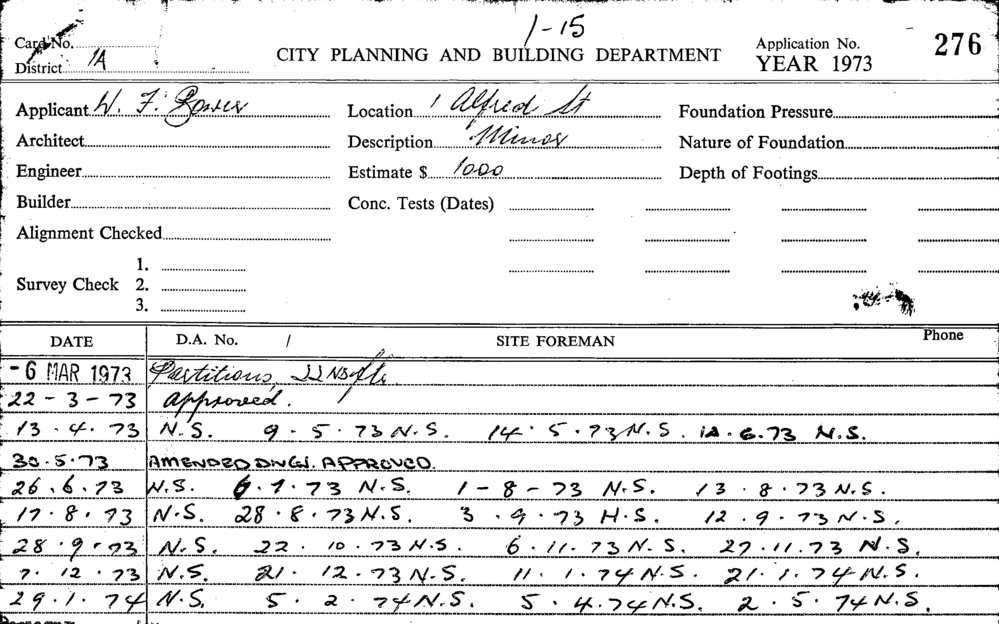 1-15
Card No.
District 1A
CITY PLANNING AND BUILDING DEPARTMENT
Application No. 276
YEAR 1973
Applicant W. F.
Location 1 Alfred St
Foundation Pressure
Architect
Description Minor
Nature of Foundation
Engineer
Estimate $ 1000
Depth of Footings
Builder
Conc. Tests (Dates)
Alignment Checked
Survey Check
1.
2.
3.
DATE D.A. No. / SITE FOREMAN Phone
-6 MAR 1973 Partitions,
22-3-73 Approved.
13.4.73 N.S. 9.5.73 N.S. 14.5.73 N.S. 12.6.73 N.S.
30.5.73 AMENDED DWGS. APPROVED.
26.6.73 N.S. 6.7.73 N.S. 1-8-73 N.S. 13.8.73 N.S.
17.8.73 N.S. 28.8.73 N.S. 3.9.73 N.S. 12.9.73 N.S.
28.9.73 N.S. 22.10.73 N.S. 6.11.73 N.S. 27.11.73 N.S.
7.12.73 N.S. 21.12.73 N.S. 11.1.74 N.S. 21.1.74 N.S.
29.1.74 N.S. 5.2.74 N.S. 5.4.74 N.S. 2.5.74 N.S.